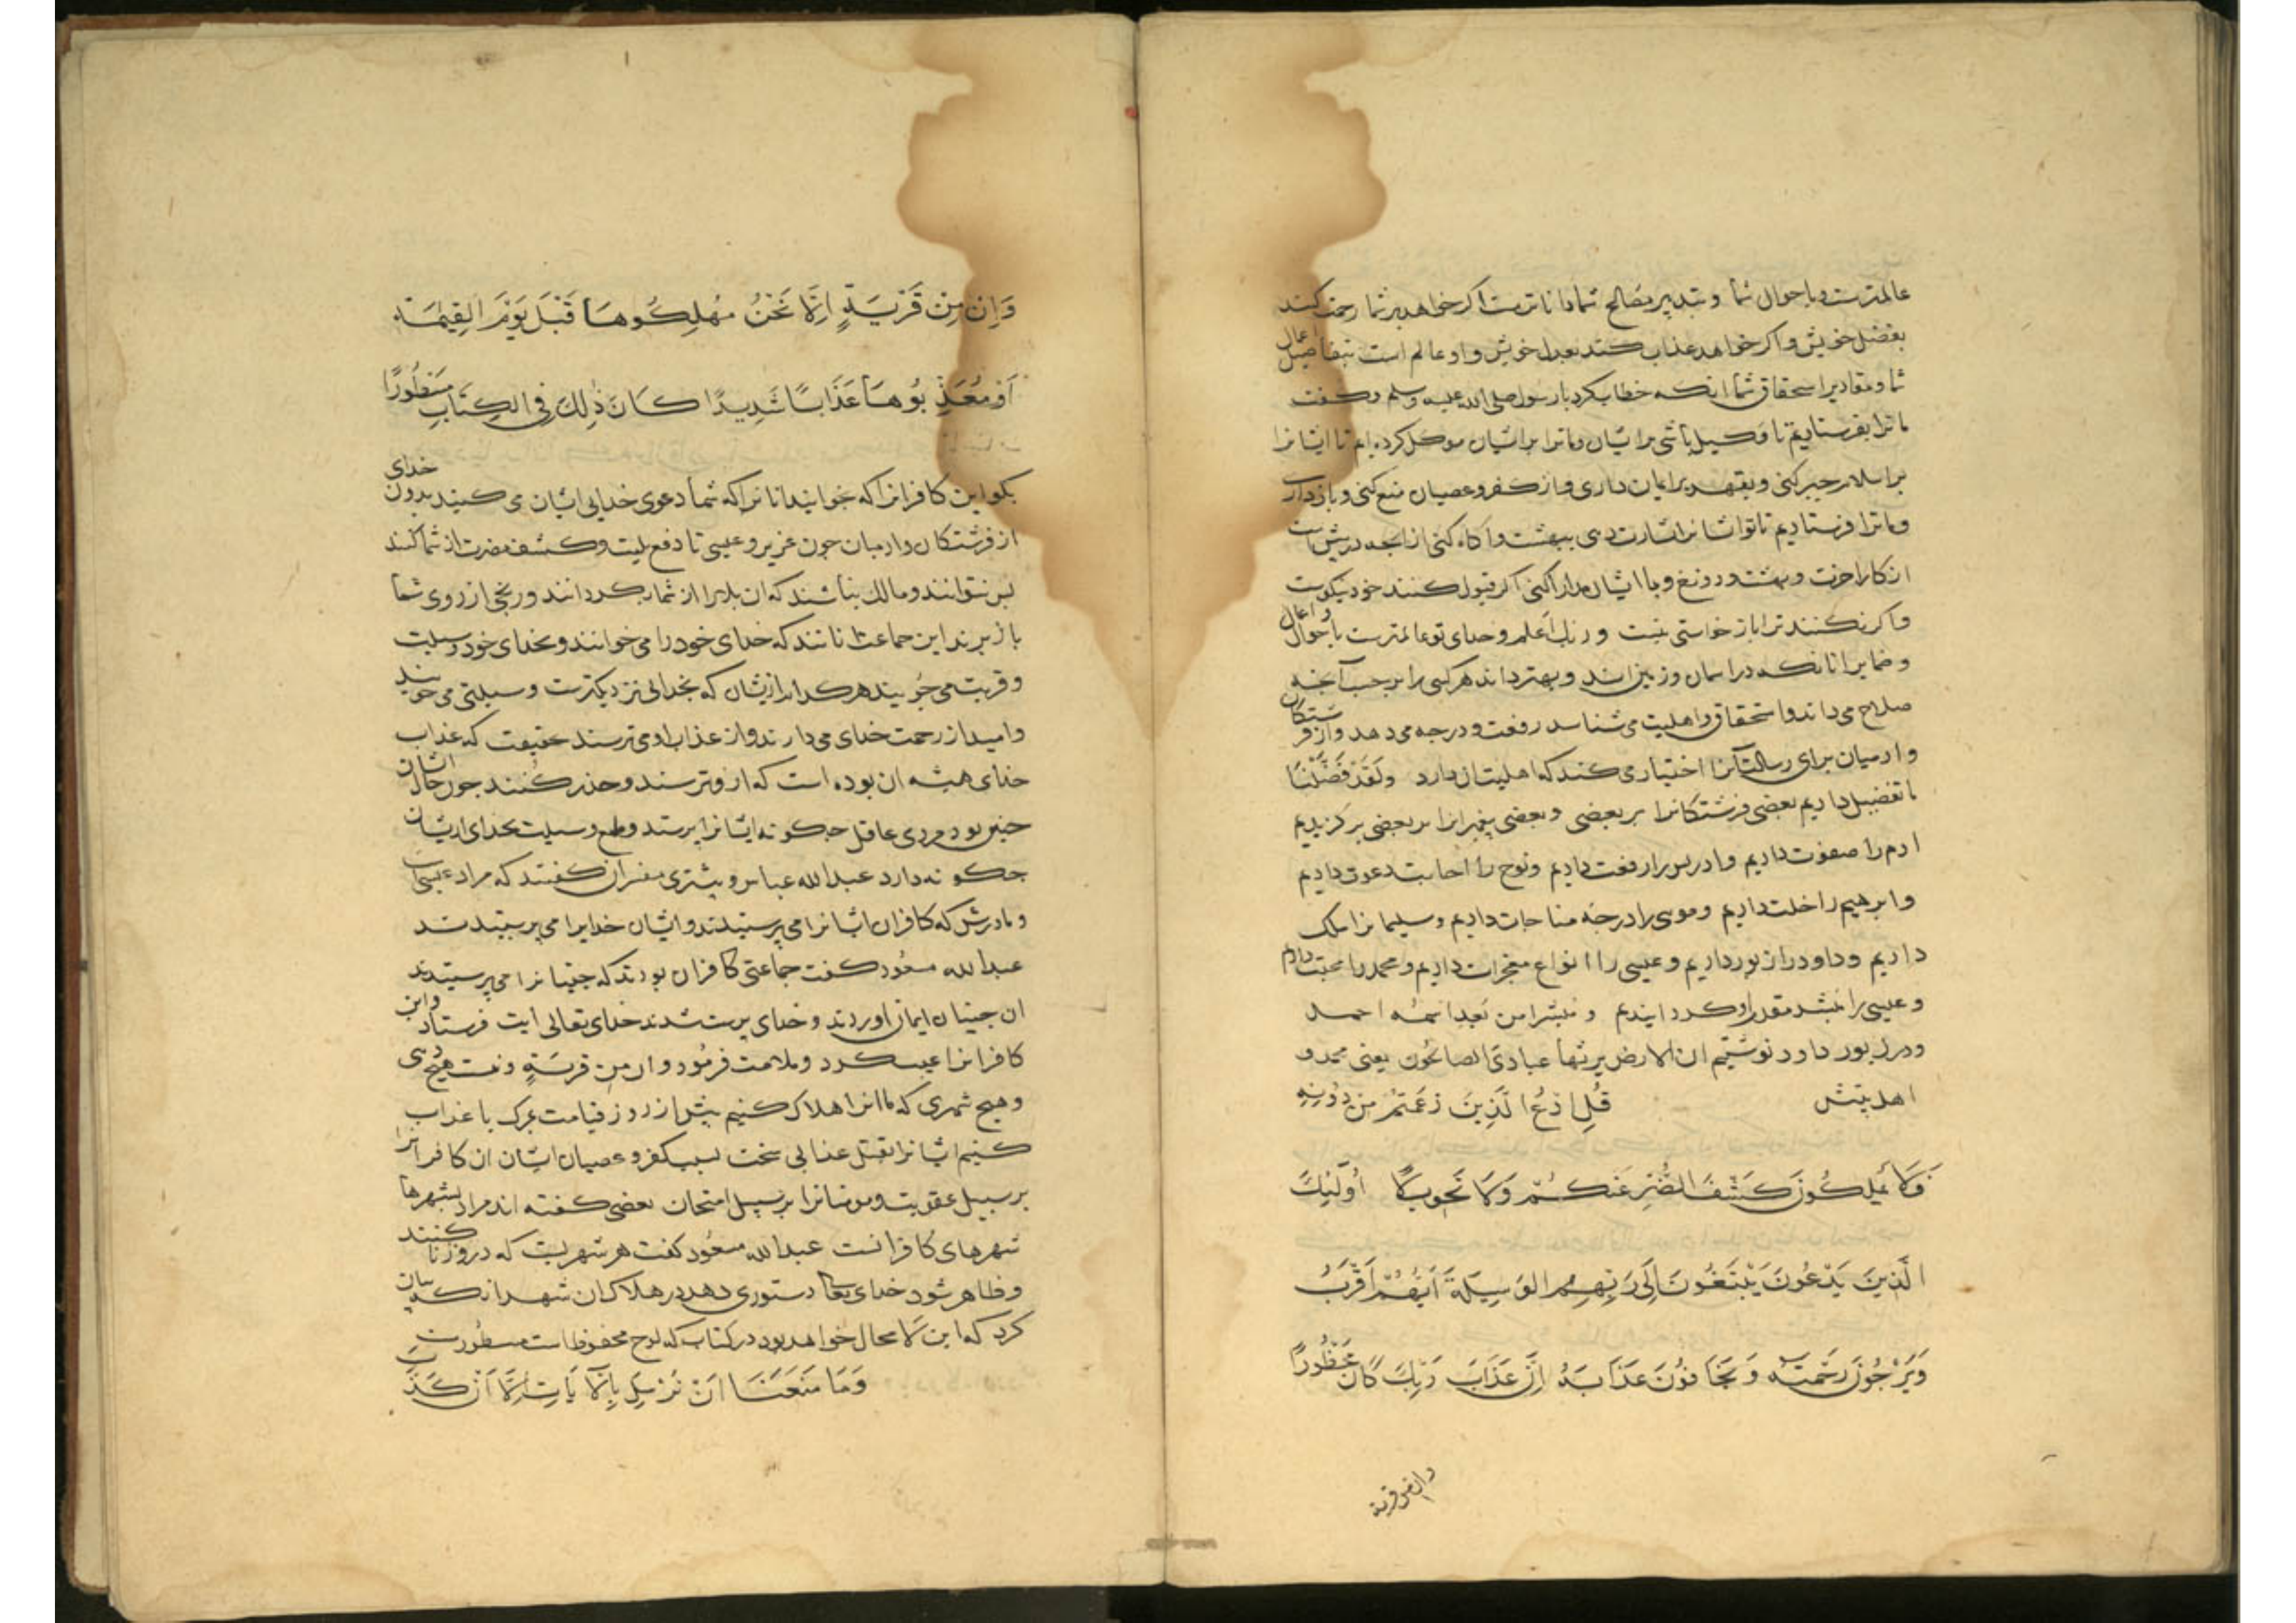 عالمترست وباحوال شما و بتدبیر مصالح شما داناترست اکر خواهد بر شما رحمت کند
بفضل خویش واکر خواهد عذاب کند بعدل خویش واو عالم است بتفاصیل اعمال
شما ومقادیر استحقاق شما انکه خطاب کرد بارسول صلی الله علیه وسلم وکفت
ما ترا بفرستادیم تا وکیل باشی بر ایشان وما ترا بر ایشان موکل کرده ایم تا ایشانرا
بر اسلام جبر کنی وبقهر بر ایمان داری واز کفر وعصیان منع کنی وبازداری
وما ترا فرستادیم تا تو ایشانرا بشارت دهی ببهشت واکاه کنی از انجه در پیش
از کار اخرت وبهشت ودوزخ وبا ایشان مدارا کنی اکر قبول کنند خود نیکوست
واکر نکنند ترا باز خواستی نیست وربک اعلم وخدای تو عالمترست باحوال واعمال
وضمایر انانکه در اسمان وزمین اند وبهتر داند هر کسی را بر حسب آنجه
صلاح می داند واستحقاق واهلیت می شناسد رفعت ودرجه می دهد واز فرشتکان
وادمیان برای رسالت آنرا اختیار می کند که اهلیت ان دارد ولقد فَضَّلْنَا
ما تفضیل دادیم بعضی فرشتکانرا بر بعضی وبعضی پیغمبرانرا بر بعضی برکزیدیم
ادم را صفوت دادیم وادریس را رفعت دادیم ونوح را اجابت دعوت دادیم
وابرهیم را خلت دادیم وموسی را درجه مناجات دادیم وسلیمانرا ملک
دادیم وداود را زبور دادیم وعیسی را انواع معجزات دادیم ومحمد را محبت دادیم
وعیسی را مبشر مقدم او کردانیدیم ومبشرا من بعد اسمه احمد
ودر زبور داود نوشتیم ان الارض یرثها عبادی الصالحون یعنی محمد و
اهل بیتش قُلِ ادْعُوا الَّذِينَ زَعَمْتُمْ مِنْ دُونِهِ
فَلَا يَمْلِكُونَ كَشْفَ الضُّرِّ عَنْكُمْ وَلَا تَحْوِيلًا أُولَٰئِكَ
الَّذِينَ يَدْعُونَ يَبْتَغُونَ إِلَىٰ رَبِّهِمُ الْوَسِيلَةَ أَيُّهُمْ أَقْرَبُ
وَيَرْجُونَ رَحْمَتَهُ وَيَخَافُونَ عَذَابَهُ إِنَّ عَذَابَ رَبِّكَ كَانَ مَحْذُورًا
وان من قریة
وَإِنْ مِنْ قَرْيَةٍ إِلَّا نَحْنُ مُهْلِكُوهَا قَبْلَ يَوْمِ الْقِيٰمَةِ
أَوْ مُعَذِّبُوهَا عَذَابًا شَدِيدًا كَانَ ذٰلِكَ فِي الْكِتَابِ مَسْطُورًا
بکو این کافرانرا که بخوانید انانرا که شما دعوی خدایی ایشان می کنید بدون خدای
از فرشتکان وادمیان جون عزیر وعیسی تا دفع بلیت وکشف مضرت از شما کنند
پس نتوانند ومالک نباشند که ان بلا را از شما بکردانند ورنجی از روی شما
باز برند این جماعت انانند که خدای خود را می خوانند وبخدای خود وسیلت
وقربت می جویند هر کدام از ایشان که بخدای نزدیکترست وسیلتی می جوید
وامید از رحمت خدای می دارند واز عذاب او می ترسند حقیقت که عذاب
خدای همیشه ان بوده است که ازو ترسند وحذر کنند جون حال ایشان
جنین بود مردی عاقل جکونه ایشانرا پرستد وطمع وسیلت بخدای از ایشان
جکونه دارد عبد الله عباس وبیشتری مفسران کفتند که مراد عیسی است
ومادرش که کافران ایشانرا می پرستیدند وایشان خدایرا می پرستیدند
عبد الله مسعود کفت جماعتی کافران بودند که جنیانرا می پرستیدند
ان جنیان ایمان اوردند وخدای پرست شدند خدای تعالی ایت فرستاد واین
کافرانرا عیب کرد وملامت فرمود وان من قریةٍ ونیست هیج دهی
وهیج شهری که ما انرا هلاک کنیم پیش از روز قیامت بمرک یا عذاب
کنیم ایشانرا بقتل عذابی سخت بسبب کفر وعصیان ایشان ان کافرانرا
بر سبیل عقوبت ومومنانرا بر سبیل امتحان بعضی کفته اند مراد بشهرها
شهرهای کافرانست عبد الله مسعود کفت هر شهریست که درو زنا کنند
وظاهر شود خدای تعالی دستوری دهد در هلاک ان شهر انکه بیان
کرد که این لا محال خواهد بود در کتاب که لوح محفوظ است مسطورست
وَمَا مَنَعَنَا أَنْ نُرْسِلَ بِالْآيَاتِ إِلَّا أَنْ كَذَّبَ